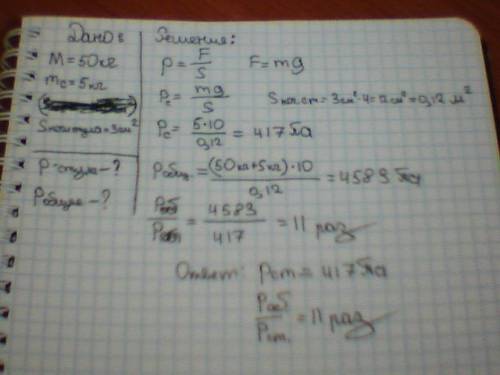 Дано:
M = 50 кг
mc = 5 кг
Sножки стула = 3 см²
P стула - ?
Pобщее - ?
Решение:
p = F/S F = mg
Pс = mg/S Sнож.ст = 3см²·4 = 12см² = 0,12 м²
Pс = 5·10/0,12 = 417 Па
Pобщ. = (50кг+5кг)·10/0,12 = 4583 Па
Pоб/ = 4583/417 = 11 раз
Ответ: Pст = 417 Па
Pоб/Pст. = 11 раз